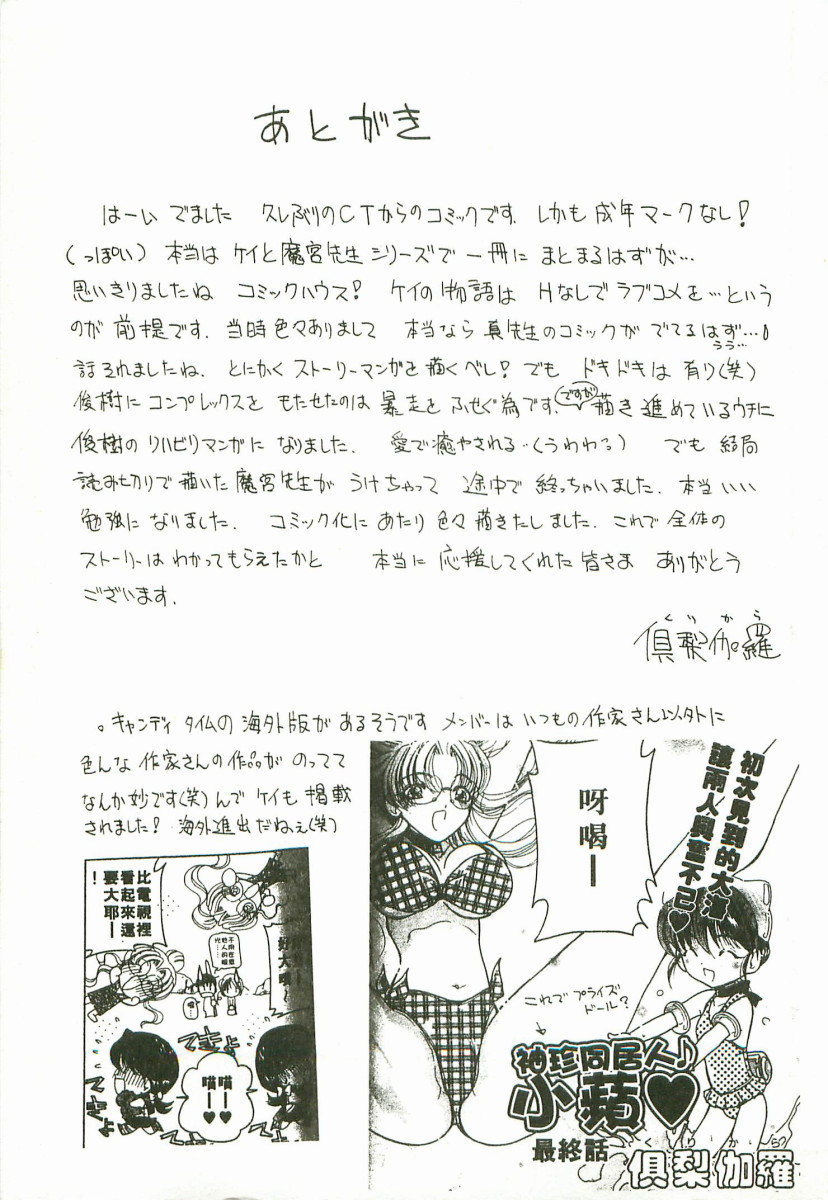 あとがき
はーい でました 久しぶりのCTからのコミックです. しかも成年マークなし!
(っぽい) 本当は ケイと魔宮先生シリーズで一冊に まとまるはずが…
思いきりましたね コミックハウス! ケイの物語は Hなしでラブコメを…という
のが 前提です. 当時色々ありまして 本当なら 真先生のコミックが でてるはず…
うう…
話それましたね. とにかく ストーリーマンガを描くべし! でも ドキドキは 有り(笑)
俊樹に コンプレックスを もたせたのは 暴走を ふせぐ為です. ですが 描き進めているウチに
俊樹の リハビリマンガに なりました. 愛で癒やされる…(うわわっ) でも 結局
読み切りで描いた魔宮先生が うけちゃって 途中で 終っちゃいました. 本当いい
勉強になりました. コミック化にあたり色々描きたしました. これで全体の
ストーリーは わかってもらえたかと 本当に 応援してくれた皆さま ありがとう
ございます.
くりから
倶梨伽羅
。キャンディ タイムの 海外版が あるそうです メンバーは いつもの 作家さん以外に
色んな 作家さんの 作品が のってて
なんか妙です(笑) んで ケイも 掲載
されました! 海外進出だねぇ(笑)
初次見到的大海
讓兩人興奮不已♥
呀喝ー
これで プライズ
ドール?
袖珍同居人♪
小蘋♥
最終話
くりから
倶梨伽羅
比電視裡
看起來還
要大耶ー
!
好大喔ー
てきよ
てきよ
てきよ
喵ー♥
喵ー♥